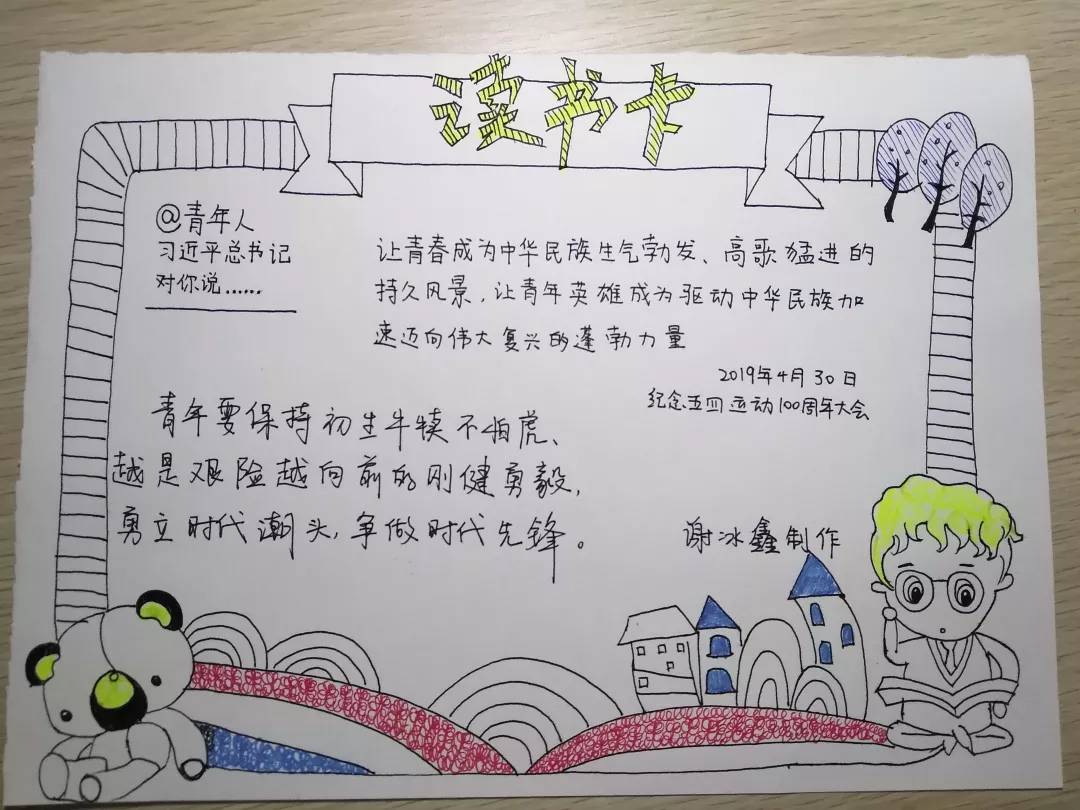 读书卡
@青年人
习近平总书记
对你说……
让青春成为中华民族生气勃发、高歌猛进的
持久风景，让青年英雄成为驱动中华民族加
速迈向伟大复兴的蓬勃力量
2019年4月30日
纪念五四运动100周年大会
青年要保持初生牛犊不怕虎、
越是艰险越向前的刚健勇毅，
勇立时代潮头，争做时代先锋。
谢冰鑫制作